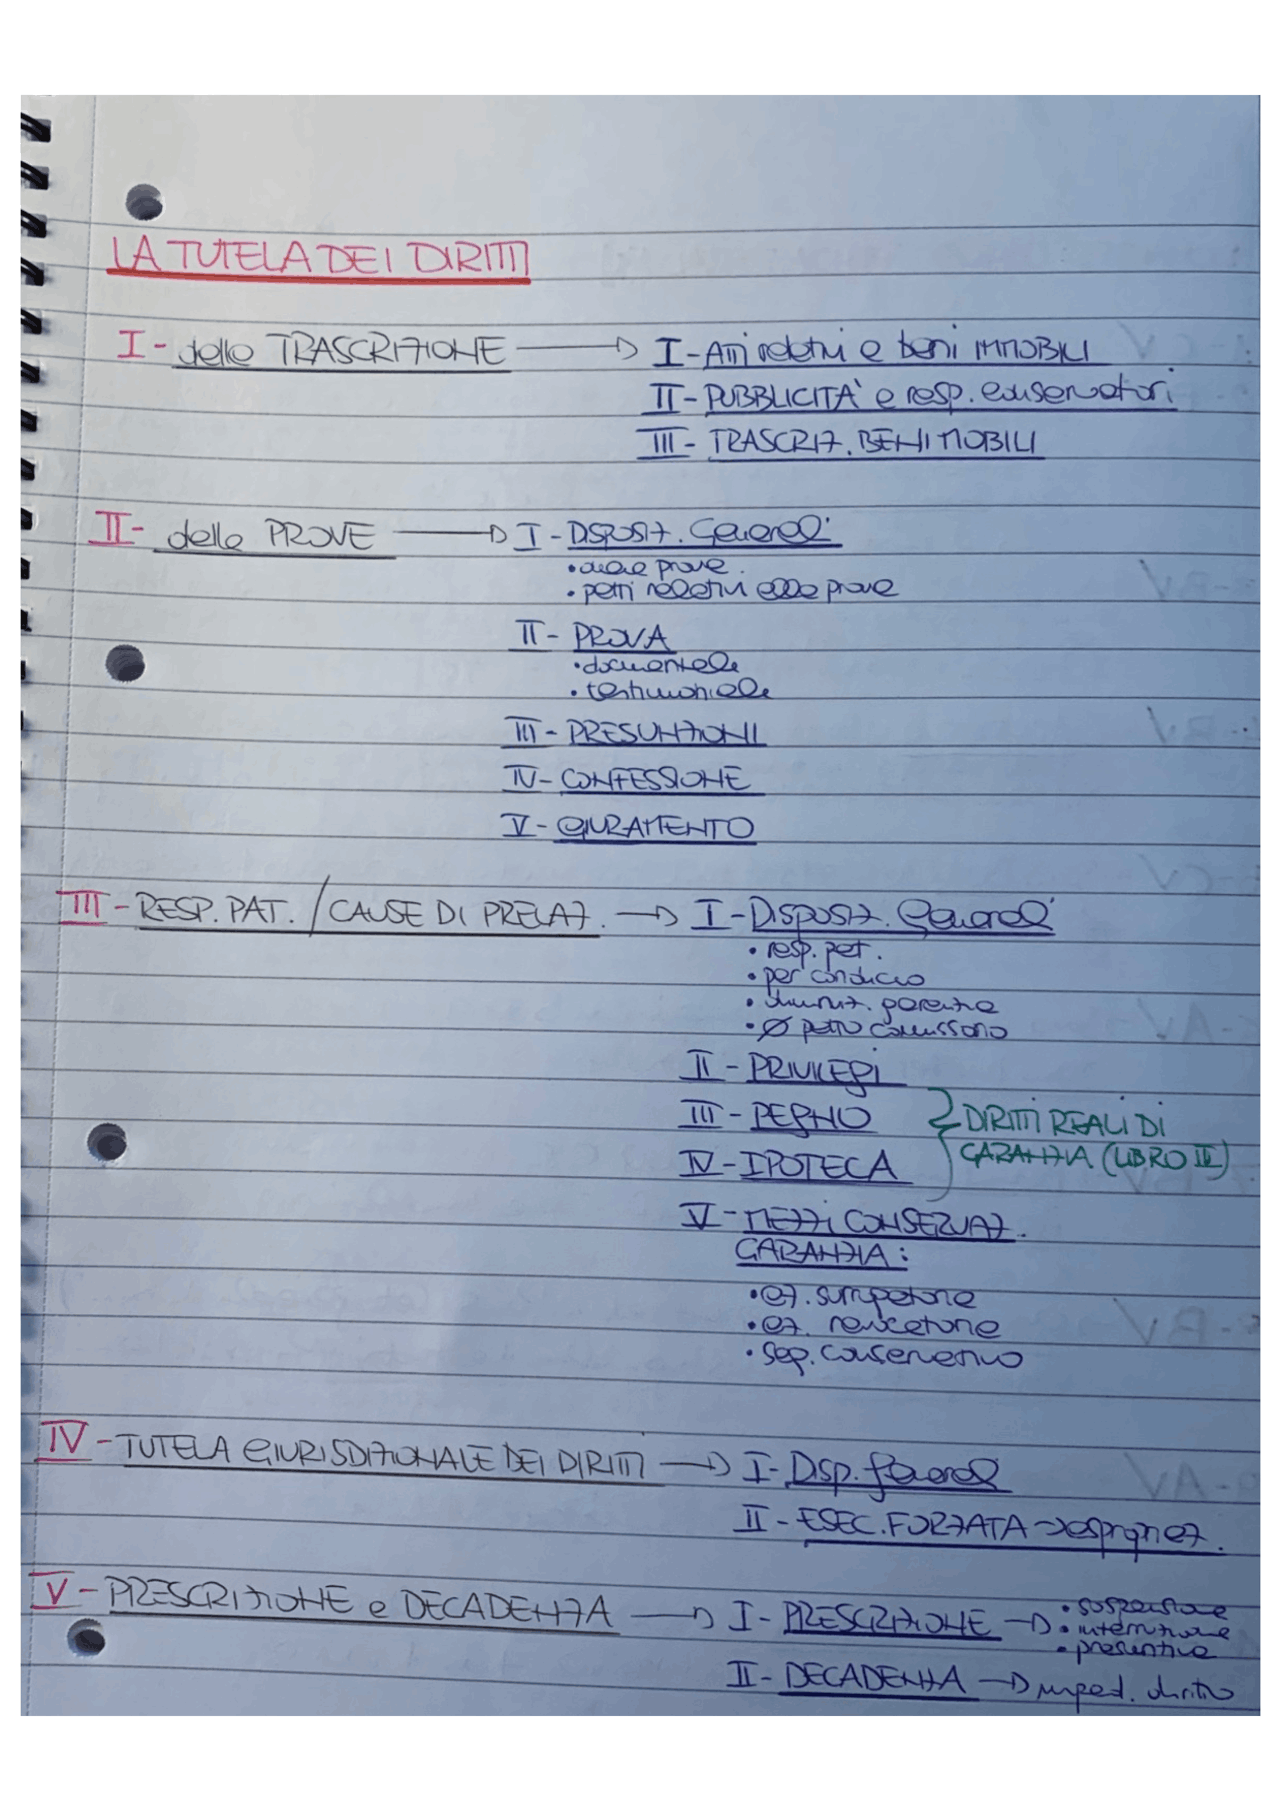 LA TUTELA DEI DIRITTI
I - della TRASCRIZIONE → I - Atti relativi a beni IMMOBILI
II - PUBBLICITÀ e resp. conservatori
III - TRASCRIZ. BENI MOBILI
II - delle PROVE → I - DISPOSIZ. Generali
• onere prova
• patti relativi alle prove
II - PROVA
• documentale
• testimoniale
III - PRESUNZIONI
IV - CONFESSIONE
V - GIURAMENTO
III - RESP. PAT. / CAUSE DI PRELAZ. → I - DISPOSIZ. Generali
• resp. pat.
• par condicio
• garanzia
• Ø patto commissorio
II - PRIVILEGI
III - PEGNO
IV - IPOTECA
} DIRITTI REALI DI
GARANZIA (LIBRO II)
V - MEZZI CONSERVAZ.
GARANZIA:
• az. surrogatoria
• az. revocatoria
• seq. conservativo
IV - TUTELA GIURISDIZIONALE DEI DIRITTI → I - Disp. generali
II - ESEC. FORZATA → espropriaz.
V - PRESCRIZIONE e DECADENZA → I - PRESCRIZIONE → • sospensione
• interruzione
• presuntiva
II - DECADENZA → imped. diritto